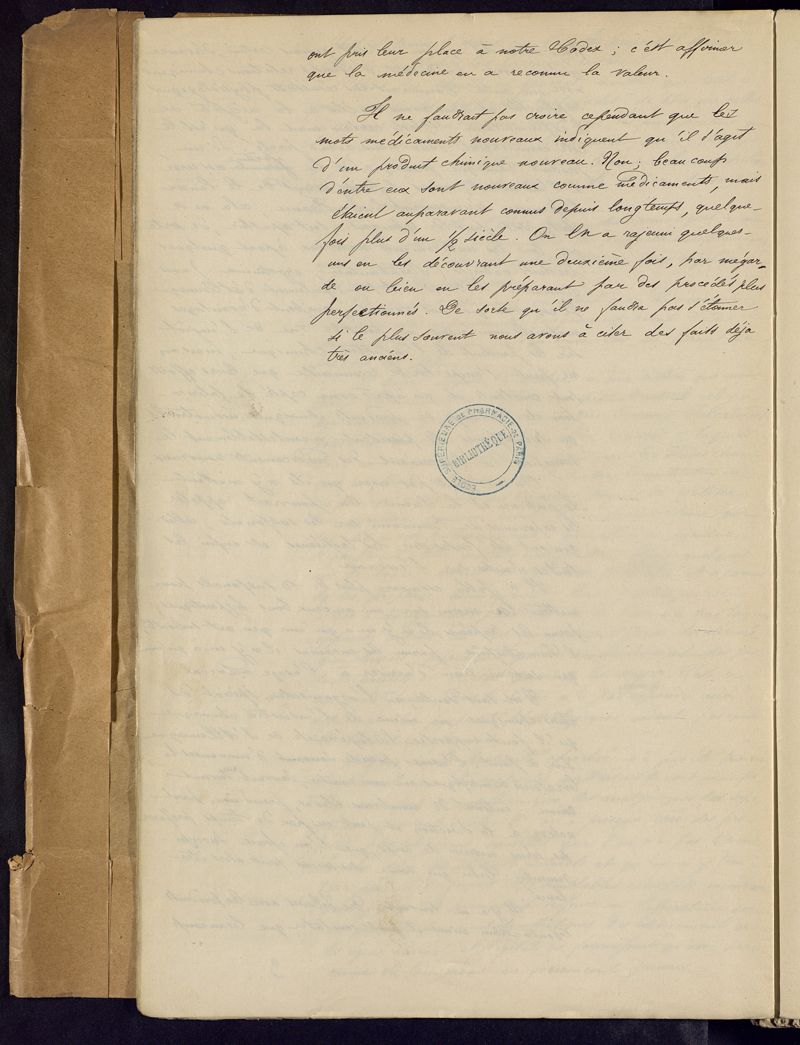 ont pris leur place à notre Codex ; c'est affirmer
que la médecine en a reconnu la valeur.
Il ne faudrait pas croire cependant que les
mots médicaments nouveaux indiquent qu'il s'agit
d'un produit chimique nouveau. Non ; beaucoup
d'entre eux sont nouveaux comme médicaments, mais
étaient auparavant connus depuis longtemps, quelque-
fois plus d'un 1/2 siècle. On en a rajeuni quelques-
uns en les découvrant une deuxième fois, par mégar-
de ou bien en les préparant par des procédés plus
perfectionnés. De sorte qu'il ne faudra pas s'étonner
si le plus souvent nous avons à citer des faits déjà
très anciens.
ÉCOLE SUPÉRIEURE DE PHARMACIE DE PARIS
BIBLIOTHÈQUE